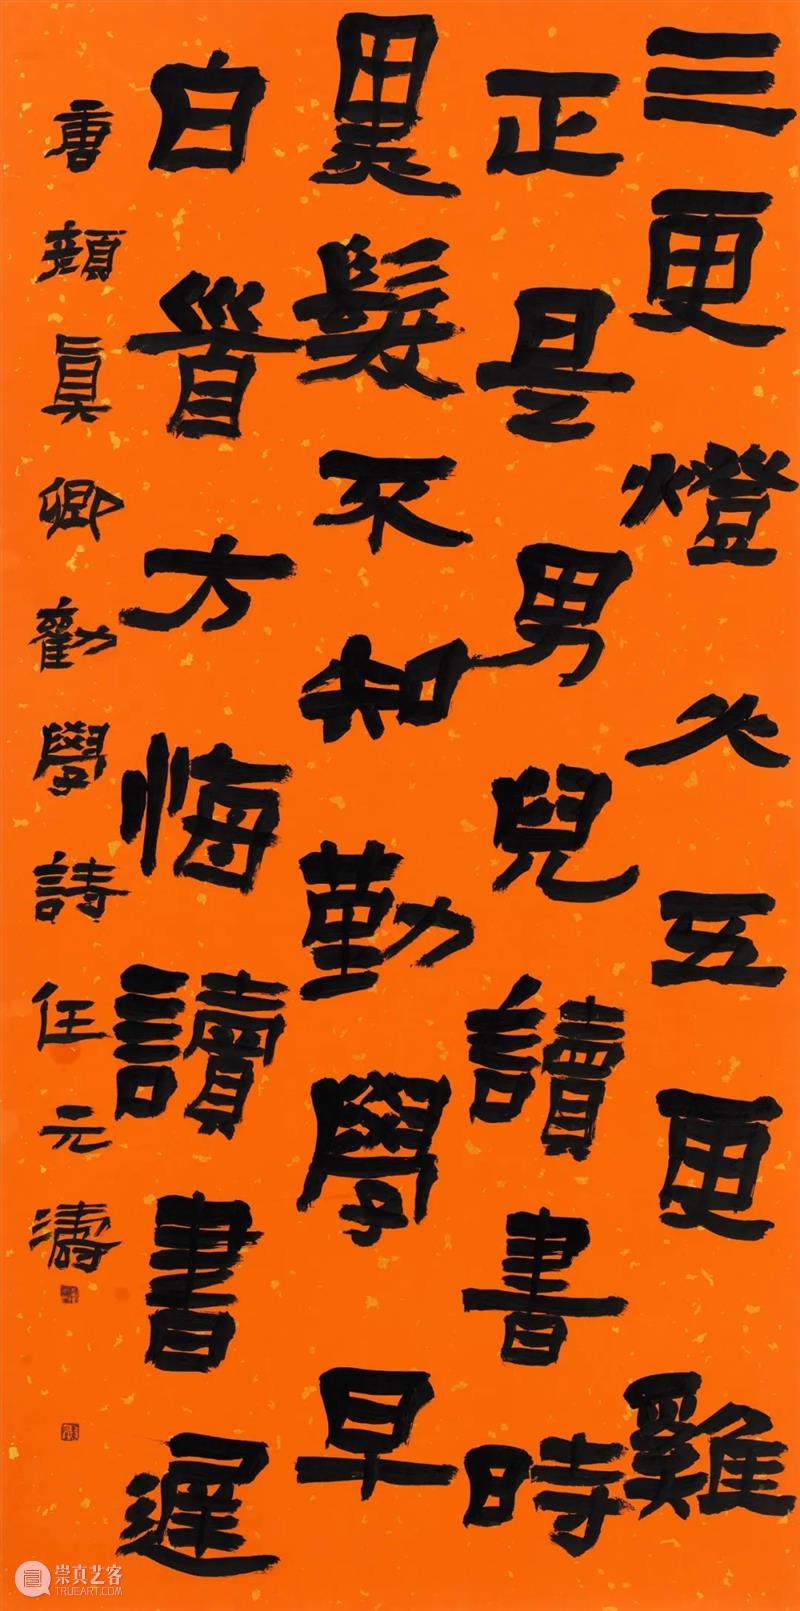 三更燈火五更雞
正是男兒讀書時
黑髮不知勤學早
白首方悔讀書遲
唐顏真卿勸學詩任元濤
崇真艺客
TRUEART.COM